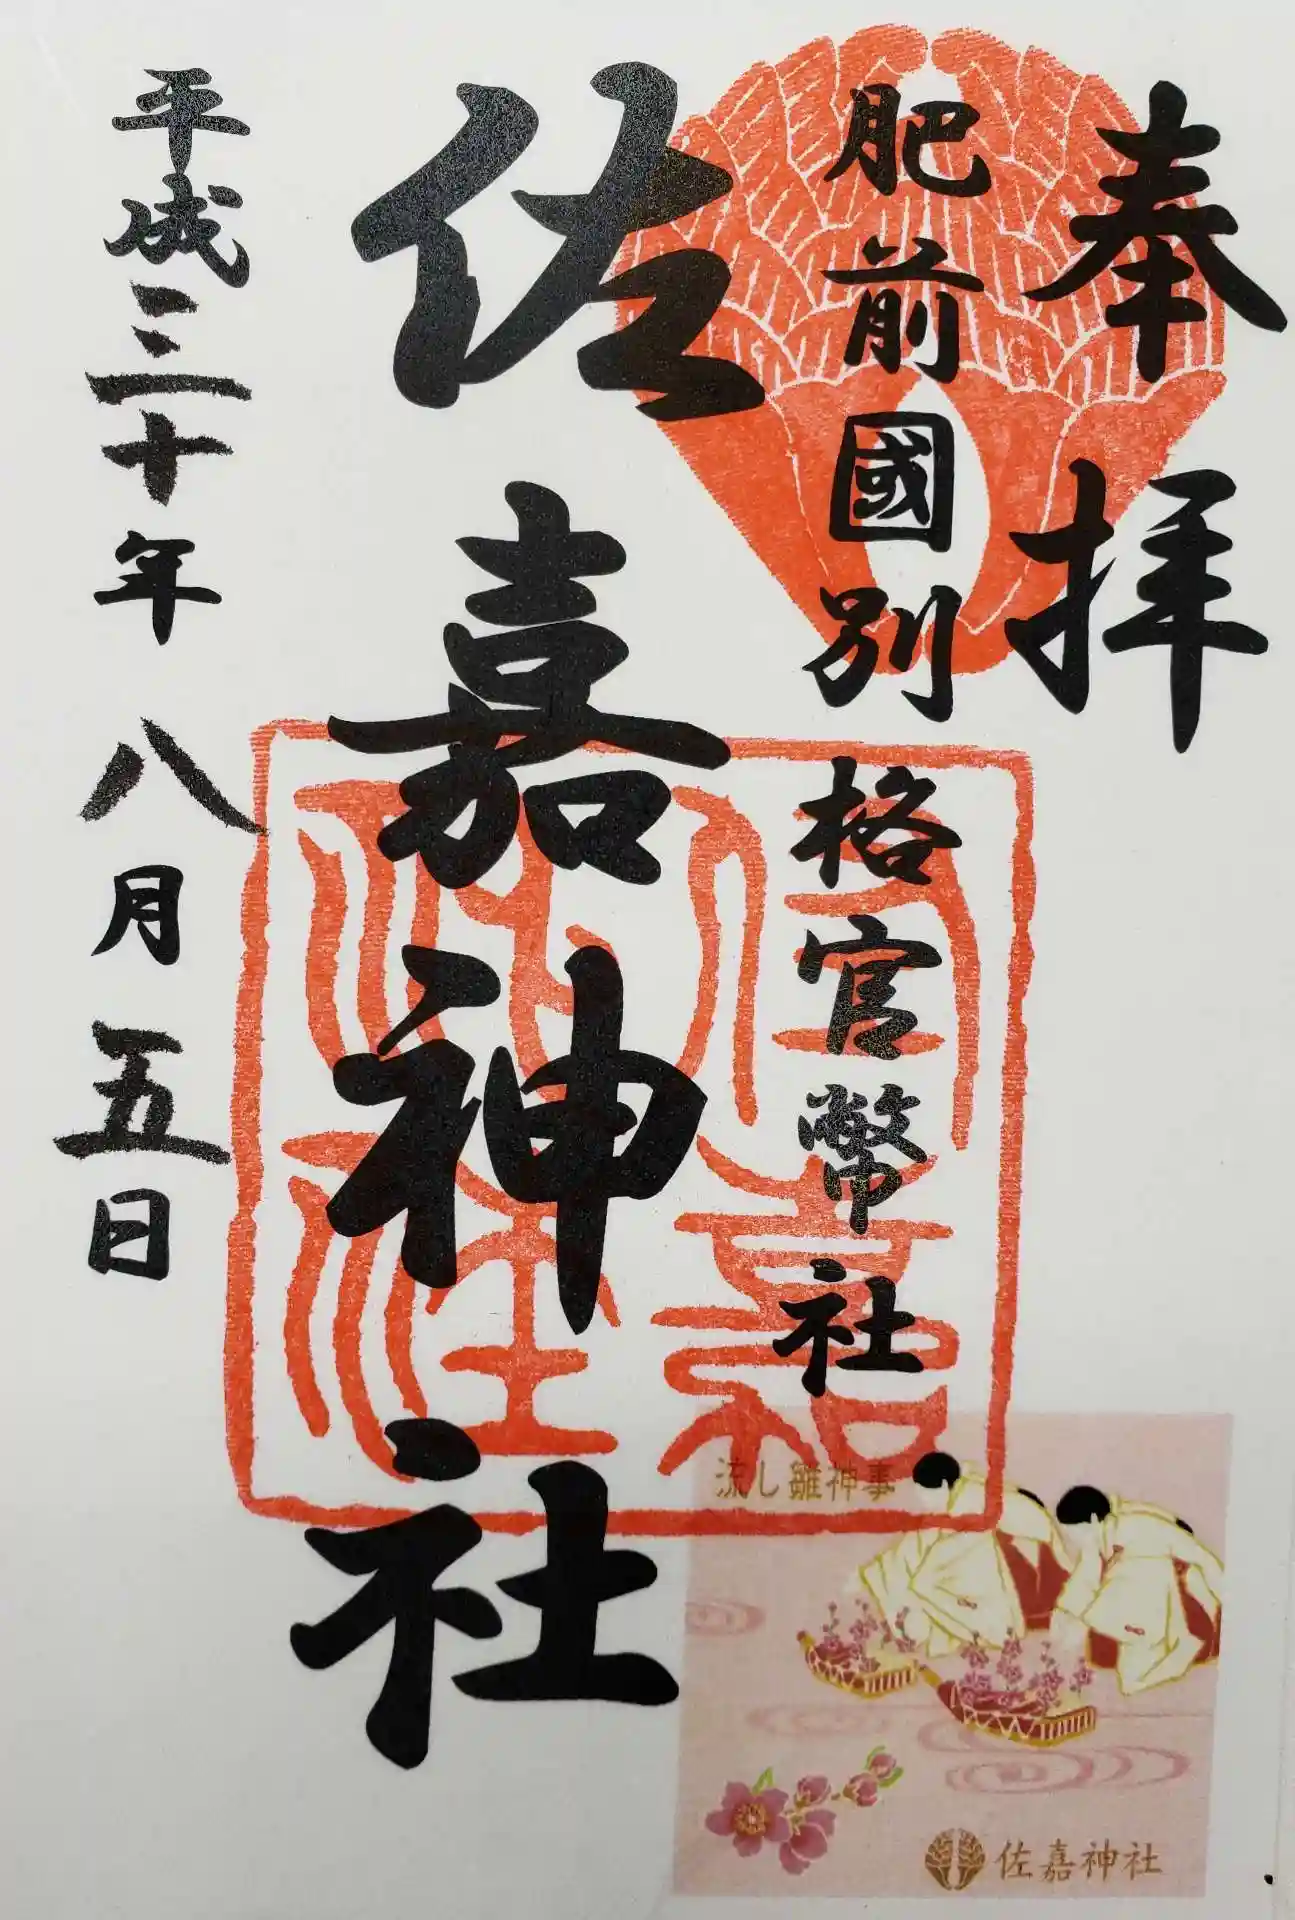 奉拝
肥前國別格官幣社
佐嘉神社
平成三十年八月五日
流し雛神事
佐嘉神社